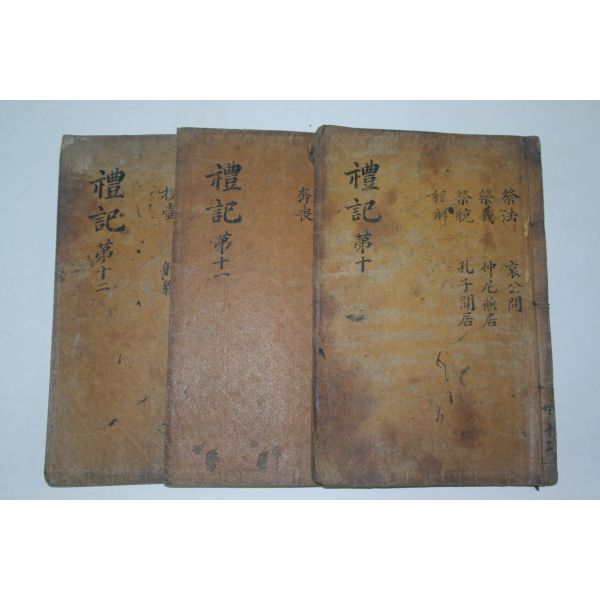 祭法 哀公問
祭義 仲尼燕居
祭統 孔子閒居
經解
禮記 第十
奔喪
禮記 第十一
投壺 射義
禮記 第十二